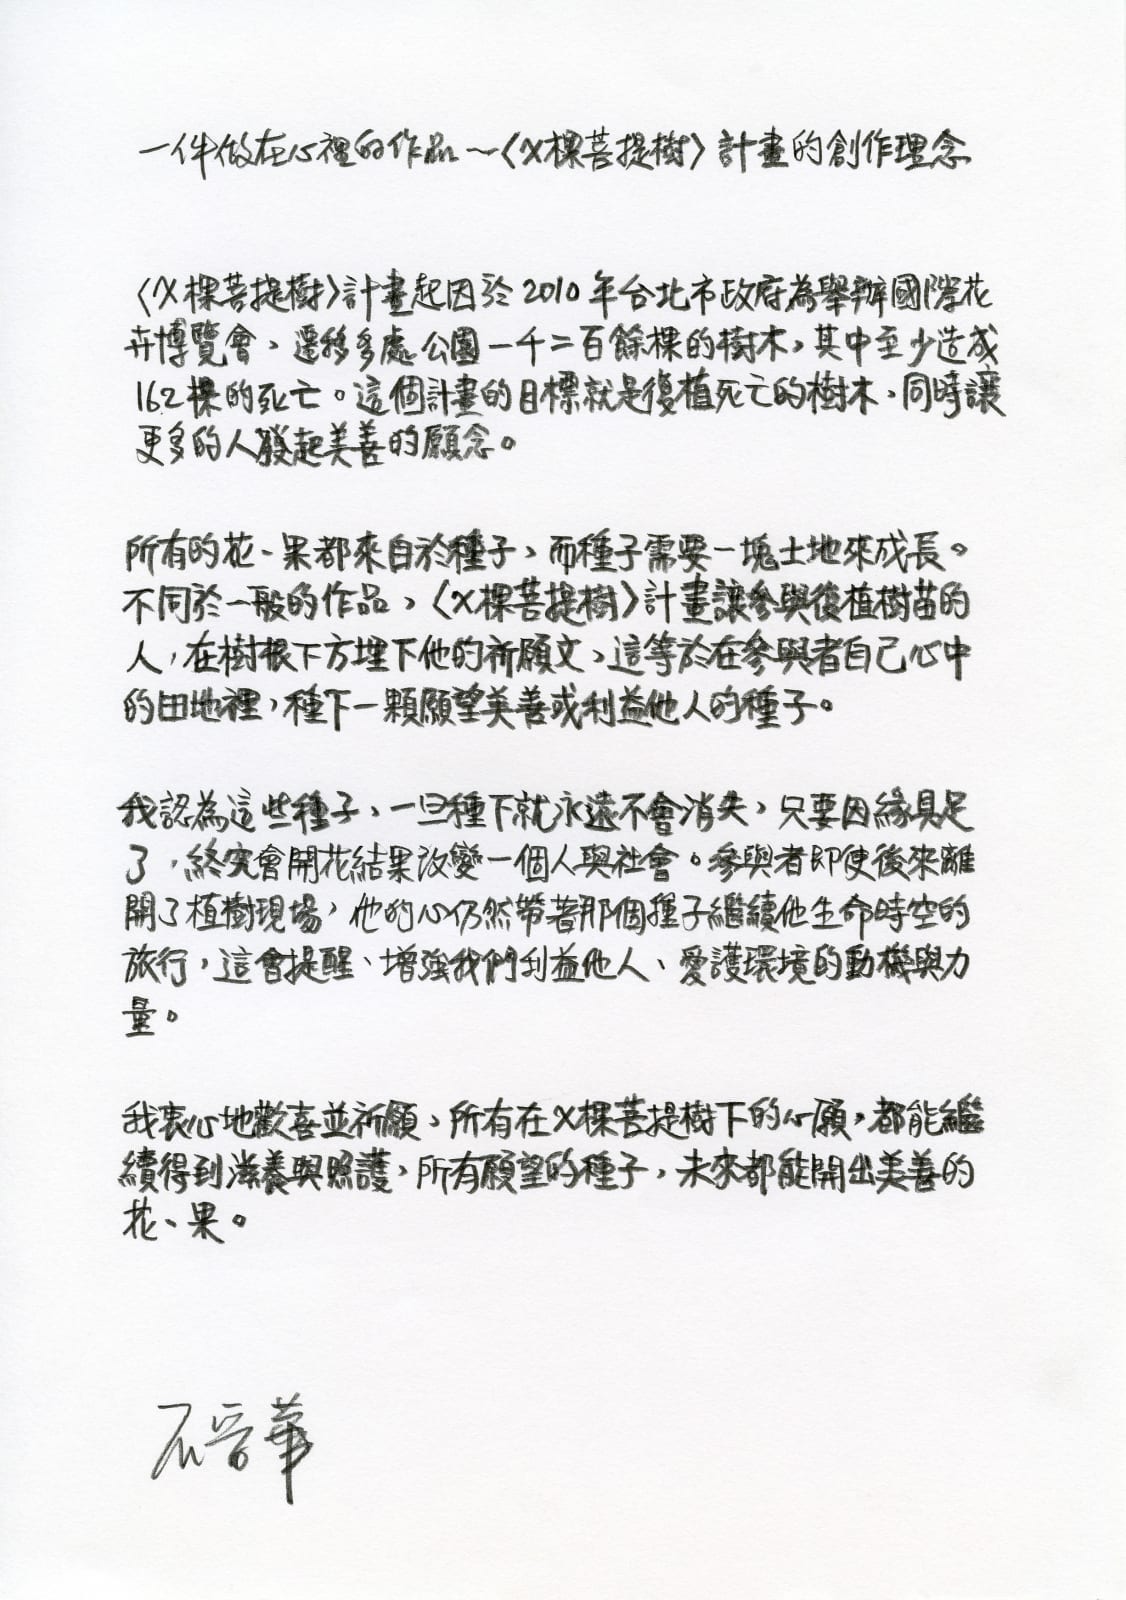 一件做在心裡的作品～〈X棵菩提樹〉計畫的創作理念
〈X棵菩提樹〉計畫起因於2010年台北市政府為舉辦國際花
卉博覽會，遷移多處公園一千二百餘棵的樹木，其中至少造成
162棵的死亡。這個計畫的目標就是復植死亡的樹木，同時讓
更多的人發起美善的願念。
所有的花、果都來自於種子，而種子需要一塊土地來成長。
不同於一般的作品，〈X棵菩提樹〉計畫讓參與復植樹苗的
人，在樹根下方埋下他的祈願文，這等於在參與者自己心中
的田地裡，種下一顆願望美善或利益他人的種子。
我認為這些種子，一旦種下就永遠不會消失，只要因緣具足
了，終究會開花結果改變一個人與社會。參與者即使後來離
開了植樹現場，他的心仍然帶著那個種子繼續他生命時空的
旅行，這會提醒、增強我們利益他人、愛護環境的動機與力
量。
我衷心地歡喜並祈願，所有在X棵菩提樹下的心願，都能繼
續得到滋養與照護，所有願望的種子，未來都能開出美善的
花、果。
石晉華